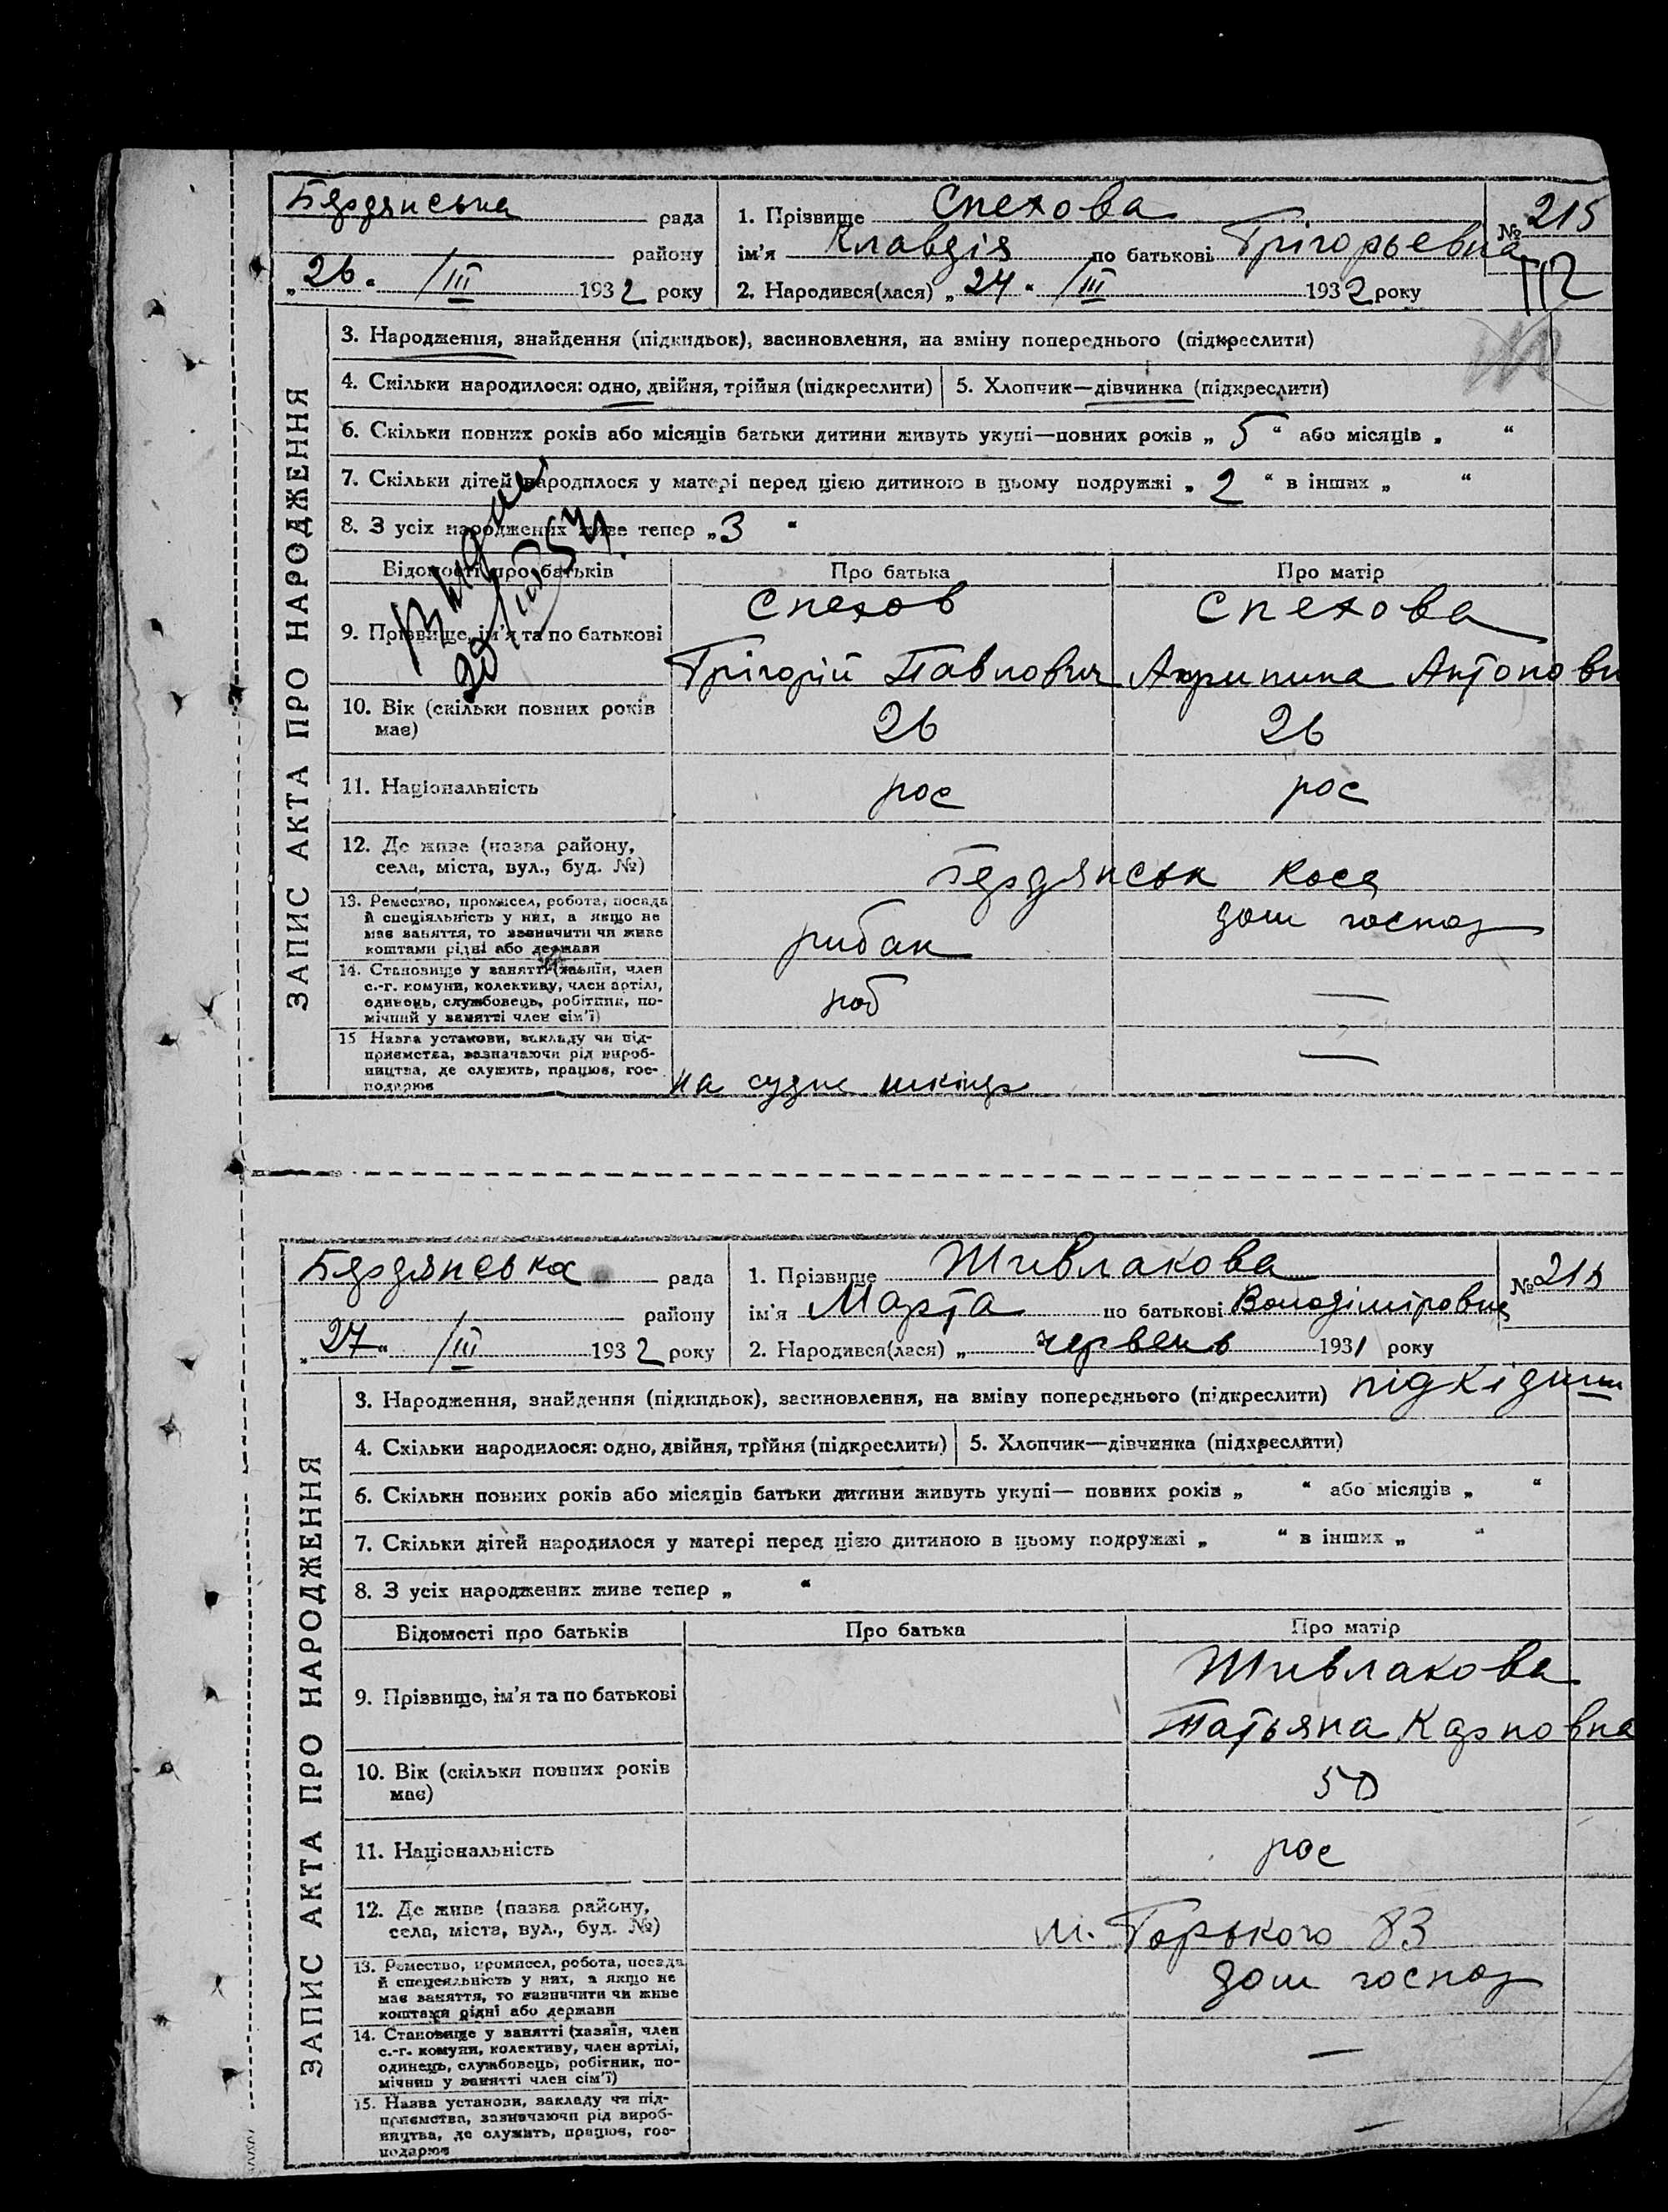 Бердянська рада
району
„26“ /III 1932 року
1. Прізвище Спехова
ім'я Клавдія по батькові Грігорьевна
2. Народився(лася) „24“ /III 1932 року
№ 215
112
ЗАПИС АКТА ПРО НАРОДЖЕННЯ
3. Народження, знайдення (підкидьок), засиновлення, на зміну попереднього (підкреслити)
4. Скільки народилося: одно, двійня, трійня (підкреслити) 5. Хлопчик—дівчинка (підкреслити)
6. Скільки повних років або місяців батьки дитини живуть укупі—повних років „ 5 “ або місяців „ “
7. Скільки дітей народилося у матері перед цією дитиною в цьому подружжі „ 2 “ в інших „ “
8. З усіх народжених живе тепер „ 3 “
Відомості про батьків Про батька Про матір
9. Прізвище, ім'я та по батькові
Спехов
Грігорій Павлович
Спехова
Акрипина Антоновн
10. Вік (скільки повних років має) 26 26
11. Національність рос рос
12. Де живе (назва району,
села, міста, вул., буд. №)
Бердянськ Коса
13. Ремество, промисел, робота, посада
й спеціяльність у них, а якщо не
має заняття, то зазначити чи живе
коштами рідні або держави
рибак
дом господ
14. Становище у занятті (хазяїн, член
с.-г. комуни, колективу, член артілі,
одинець, службовець, робітник, по-
мічний у занятті член сім'ї)
роб —
15 Назва установи, закладу чи під-
приємства, зазначаючи рід вироб-
ництва, де служить, працює, гос-
подарює
на судне —
Бердянська рада
району
„27“ /III 1932 року
1. Прізвище Шивлакова
ім'я Марта по батькові Володіміровна
2. Народився(лася) „ червень 1931 року
№ 216
ЗАПИС АКТА ПРО НАРОДЖЕННЯ
3. Народження, знайдення (підкидьок), засиновлення, на зміну попереднього (підкреслити) підкідиш
4. Скільки народилося: одно, двійня, трійня (підкреслити) 5. Хлопчик—дівчинка (підкреслити)
6. Скільки повних років або місяців батьки дитини живуть укупі— повних років „ “ або місяців „ “
7. Скільки дітей народилося у матері перед цією дитиною в цьому подружжі „ “ в інших „ “
8. З усіх народжених живе тепер „ “
Відомості про батьків Про батька Про матір
9. Прізвище, ім'я та по батькові
Шивлакова
Татьяна Карповна
10. Вік (скільки повних років має) 50
11. Національність рос
12. Де живе (назва району,
села, міста, вул., буд. №)
м. Горького 83
13. Ремество, промисел, робота, посада
й спецеяльність у них, а якщо не
має заняття, то зазначити чи живе
коштами рідні або держави
дом господ
14. Становище у занятті (хазяїн, член
с.-г. комуни, колективу, член артілі,
одинець, службовець, робітник, по-
мічний у занятті член сім'ї)
—
15. Назва установи, закладу чи під-
приємства, зазначаючи рід вироб-
ництва, де служить, працює, гос-
подарює
—